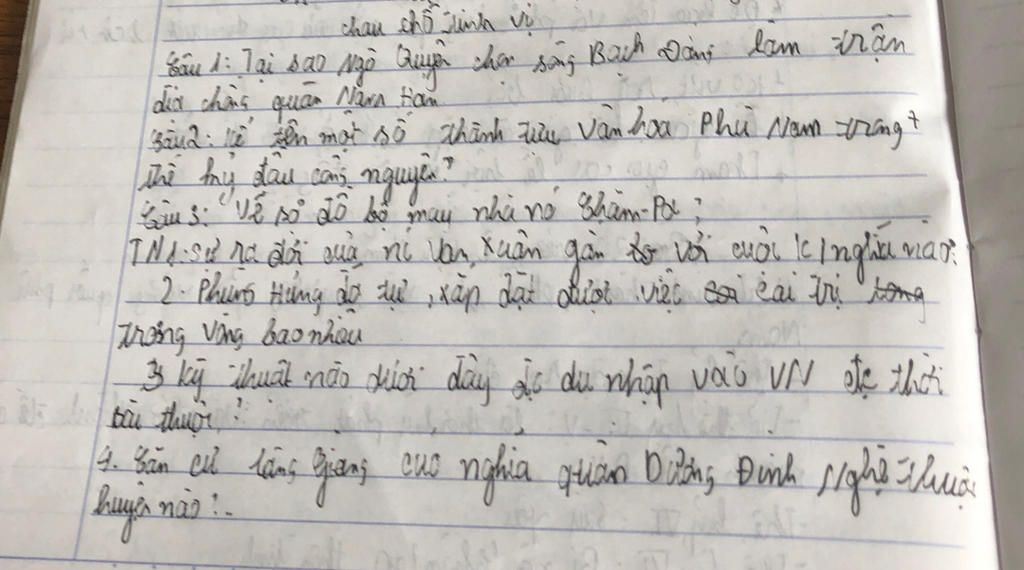 Câu 1: Tại sao Ngô Quyền chọn sông Bạch Đằng làm trận
địa chống quân Nam Hán
Câu 2: Kể tên một số thành tựu văn hoá Phù Nam trong
thế kỷ đầu công nguyên?
Câu 3: Vẽ sơ đồ bộ máy nhà nc Chăm-Pa?
TN1: Sự ra đời của nc Vạn Xuân gắn với cuộc k/nghĩa nào?
2. Phùng Hưng đã tự, xắp đặt được việc cai trị
trong vòng bao nhiêu
3 kỹ thuật nào dưới đây đc du nhập vào VN thời
bắc thuộc?
4. Căn cứ làng Giàng của nghĩa quân Dương Đình Nghệ thuộc
huyện nào?